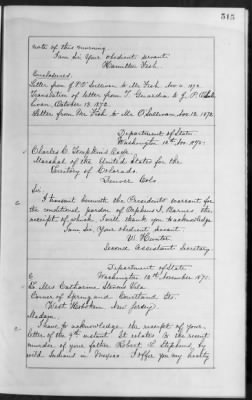 515
note of this morning.
I am Sir Your obedient servant
Hamilton Fish.
Enclosures.
Letter from J. P. O'Sullivan to Mr Fish Nov 11. 1872
Translation of letter from T. Guardia to J. P. O'Sulli-
van, October 13. 1872.
Letter from Mr Fish to Mr O'Sullivan, Nov. 12. 1872.
Department of State
Washington 12th Nov. 1872.
Charles C. Tompkins Esqre.
Marshal of the United States for the
Territory of Colorado.
Denver Colo
Sir:
I transmit herewith the President's warrant for
the conditional pardon of Orpheus J. Barnes the
receipt of which I will thank you to acknowledge.
I am Sir, Your obedient servant.
W. Hunter
Second Assistant Secretary
Department of State
Washington 12th November 1872.
To Mrs Catharine
Corner of Spring and Courtland Sts.
West Hoboken New Jersey.
Madam:
I have to acknowledge the receipt of your
letter of the 9th instant. It relates to the recent
murder of your father Robert Stephens by
wild Indians in Mexico. I offer you my hearty